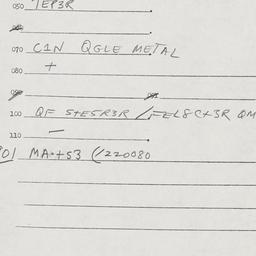 050 TEP3R
070 C1N QGLE METAL
080 +
100 QF S+ESR3R /FEL8C+3R QM
110 —
MA·+S3 (/220080